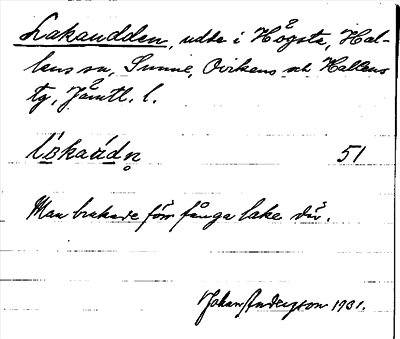 Lakaudden, udde i Högsta, Hal-
lens sn, Sunne, Ovikens och Hallens
tg, Jämtl. l.
51
Man brukade förr fånga lake där.
Johan Anderzon 1931.